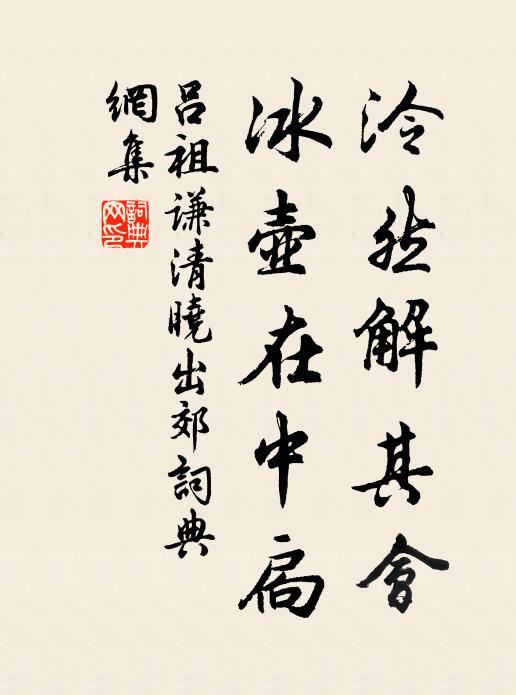 泠然解其會
冰壺在中扃
呂祖謙清曉出郊詞典
網集
詞典網印